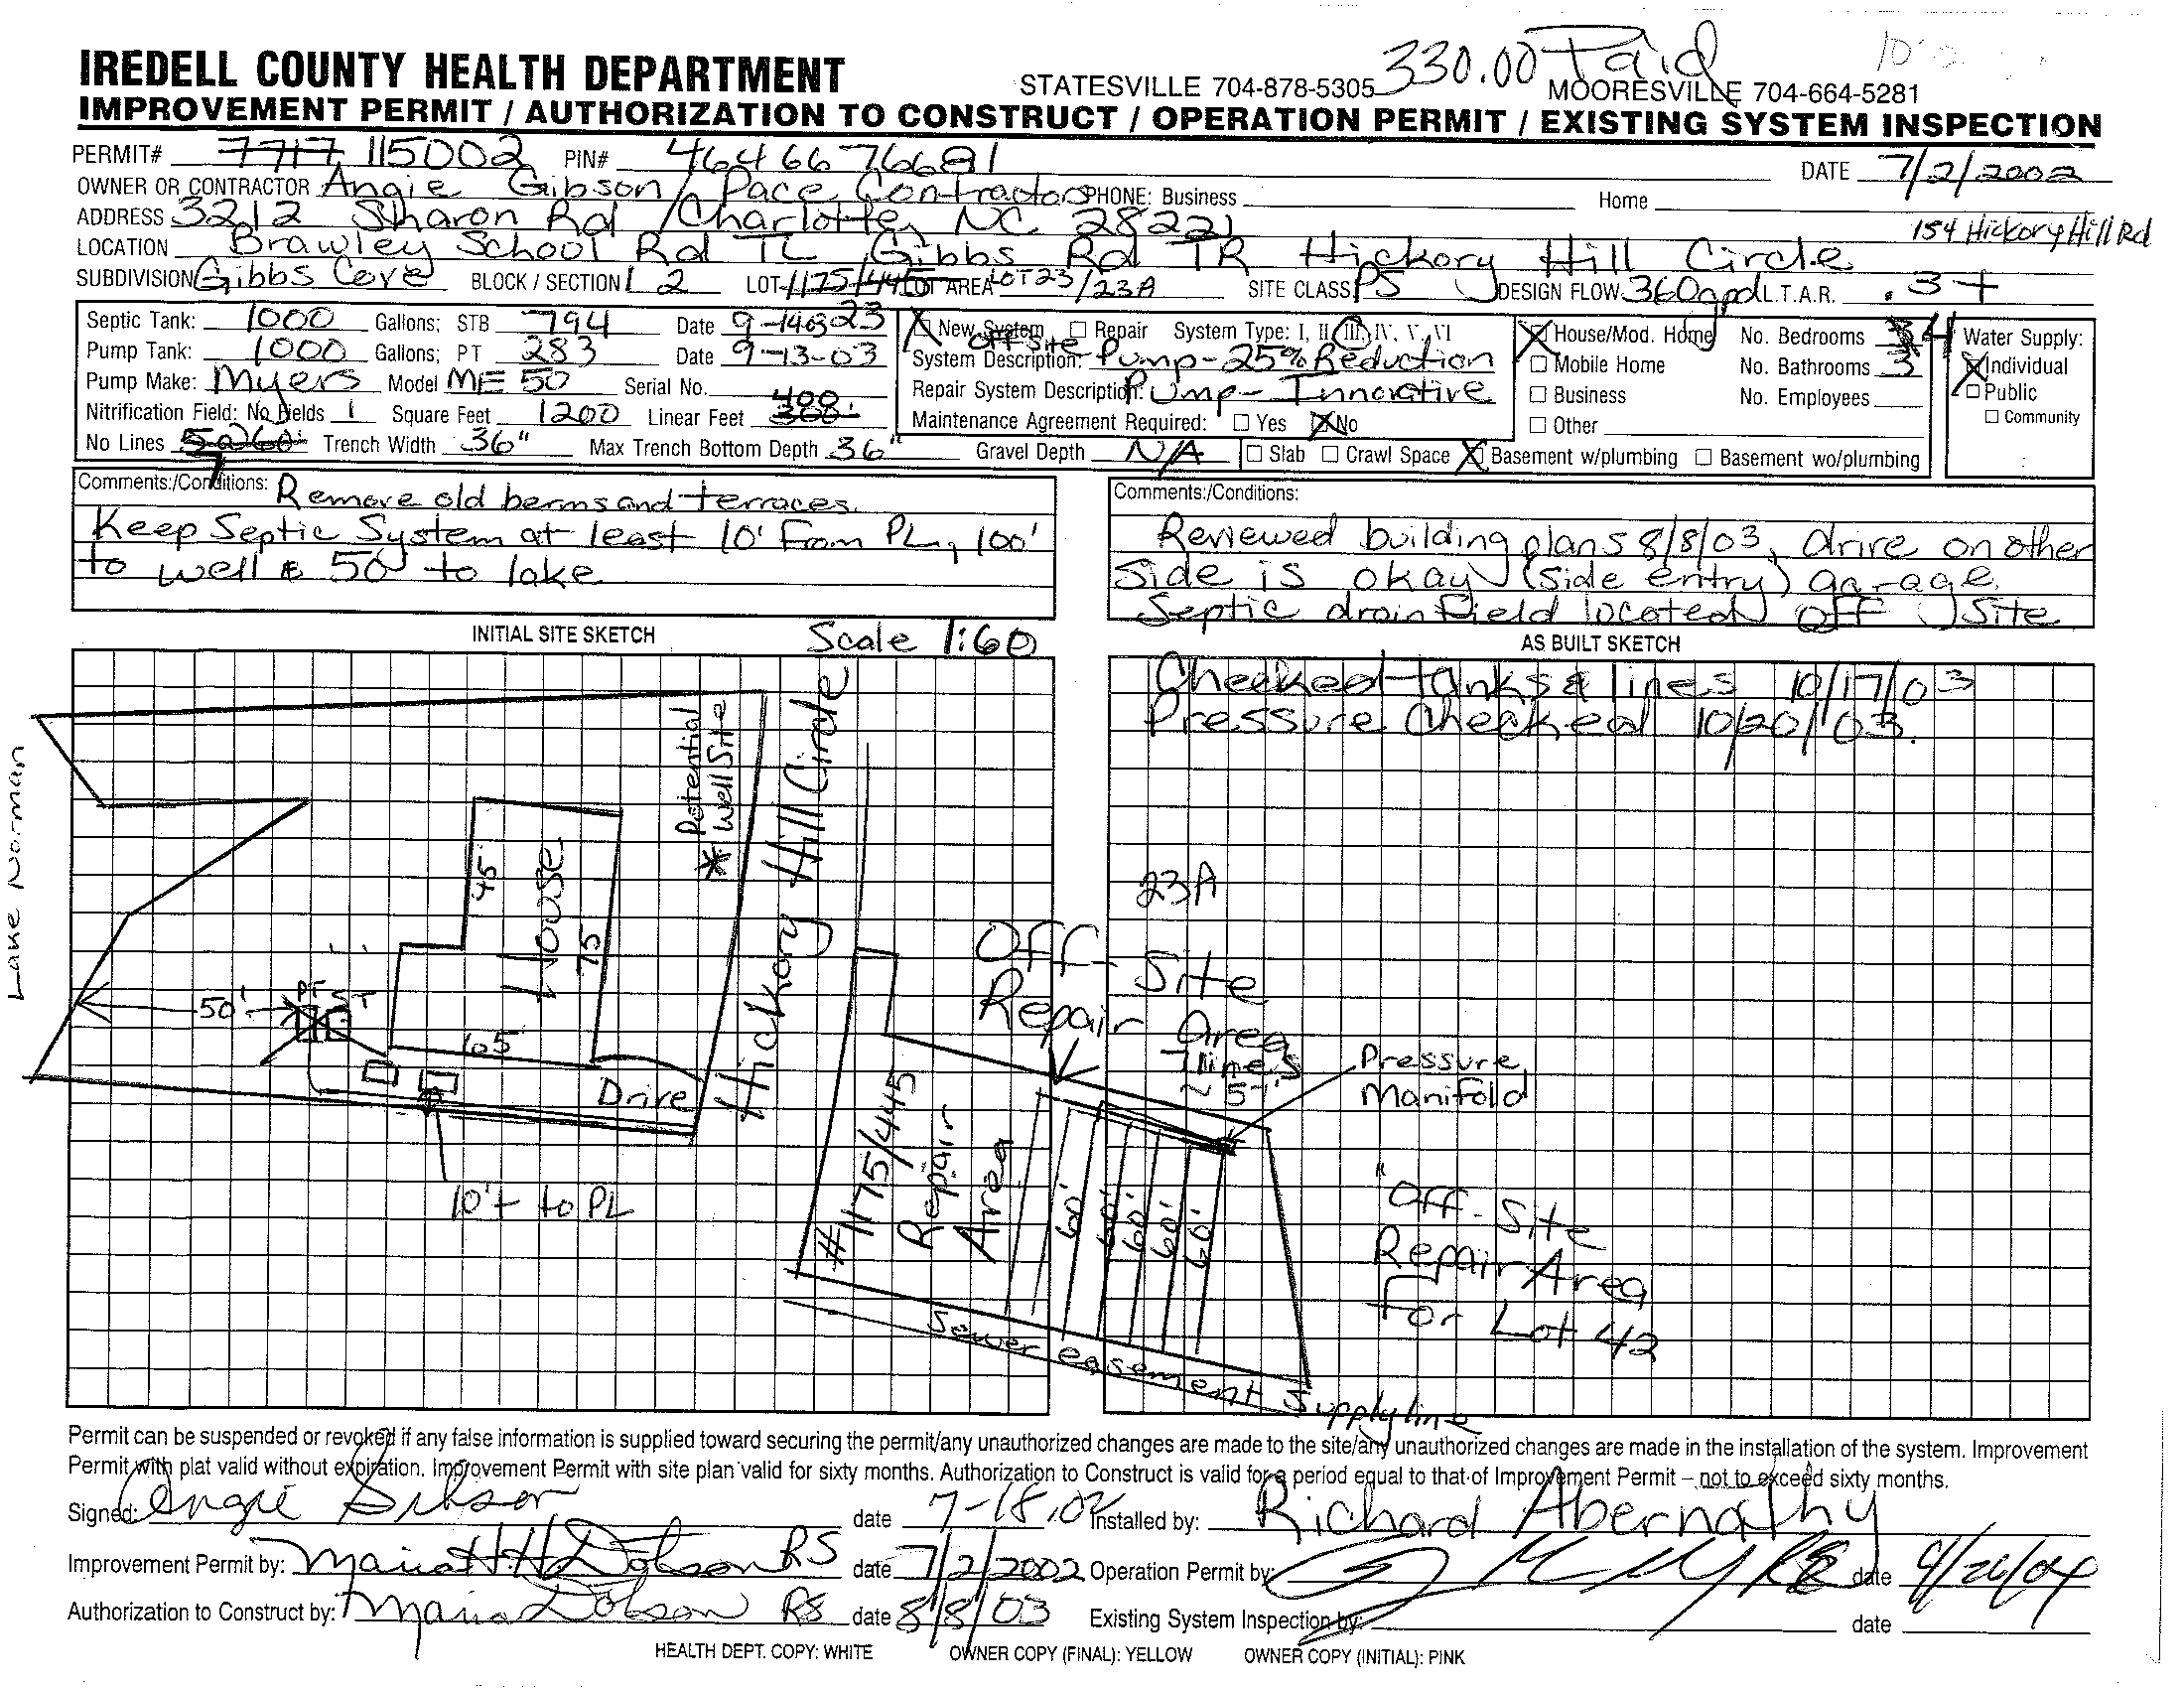 330.00 Paid
IREDELL COUNTY HEALTH DEPARTMENT STATESVILLE 704-878-5305 MOORESVILLE 704-664-5281
IMPROVEMENT PERMIT / AUTHORIZATION TO CONSTRUCT / OPERATION PERMIT / EXISTING SYSTEM INSPECTION
PERMIT# 7717 115002 PIN# 4646676681 DATE 7/2/2002
OWNER OR CONTRACTOR Angie Gibson / Pace Contractors PHONE: Business Home
ADDRESS 3212 Sharon Rd / Charlotte, NC 28221
154 Hickory Hill Rd
LOCATION Brawley School Rd TL Gibbs Rd TR Hickory Hill Circle
SUBDIVISION Gibbs Cove BLOCK / SECTION L 2 LOT 1175/445 LOT AREA LOT 23/23A SITE CLASS PS DESIGN FLOW 360gpd L.T.A.R. .3+
Septic Tank: 1000 Gallons; STB 794 Date 9-14-03 23
Pump Tank: 1000 Gallons; PT 283 Date 9-13-03
Pump Make: Myers Model ME 50 Serial No.
Nitrification Field: No Fields 1 Square Feet 1200 Linear Feet 400
No Lines 5@60' 7 Trench Width 36" Max Trench Bottom Depth 36" Gravel Depth N/A
New System Repair System Type: I, II, III, IV, V, VI
Off Site
System Description: Pump-25% Reduction
Repair System Description: Pump- Innovative
Maintenance Agreement Required: Yes No
House/Mod. Home No. Bedrooms 4
Mobile Home No. Bathrooms 3
Business No. Employees
Other
Slab Crawl Space Basement w/plumbing Basement wo/plumbing
Water Supply:
Individual
Public
Community
Comments:/Conditions: Remove old berms and terraces.
Keep Septic System at least 10' From PL, 100'
to well & 50' to lake
Comments:/Conditions:
Reviewed building plans 8/8/03, drive on other
side is okay (side entry) garage.
Septic drainfield located off site
INITIAL SITE SKETCH Scale 1:60
AS BUILT SKETCH
Checked tanks & lines 10/17/03
Pressure Checked 10/20/03.
Lake Norman
Potential
* Well Site
Hickory Hill Circle
45
House
75
65
50'
PT ST
Drive
10'+ to PL
23A
Off-Site
Repair Area
7 lines
~57'
Pressure
Manifold
#1175/445
Repair
Area
60' 60' 60' 60' 60'
"Off-Site
Repair Area
For Lot 42
Sewer easement Supply line
Permit can be suspended or revoked if any false information is supplied toward securing the permit/any unauthorized changes are made to the site/any unauthorized changes are made in the installation of the system. Improvement
Permit with plat valid without expiration. Improvement Permit with site plan valid for sixty months. Authorization to Construct is valid for a period equal to that of Improvement Permit – not to exceed sixty months.
Signed: Angie Gibson date 7-18-02 Installed by: Richard Abernathy
Improvement Permit by: Maria H Dobson RS date 7/2/2002 Operation Permit by: date
Authorization to Construct by: Maria Dobson RS date 8/8/03 Existing System Inspection by: date
HEALTH DEPT. COPY: WHITE OWNER COPY (FINAL): YELLOW OWNER COPY (INITIAL): PINK